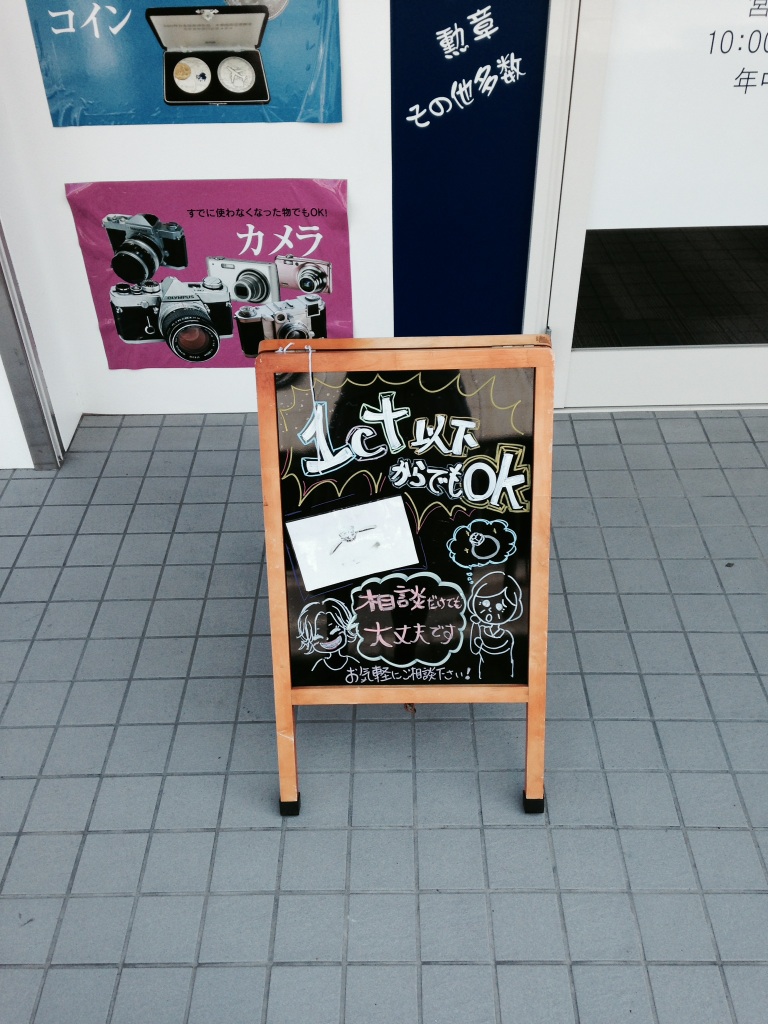 コイン
勲章
その他多数
10:00
年中
すでに使わなくなった物でもOK!
カメラ
OLYMPUS
1ct以下
からでもok
相談だけでも
大丈夫です
お気軽にご相談下さい!